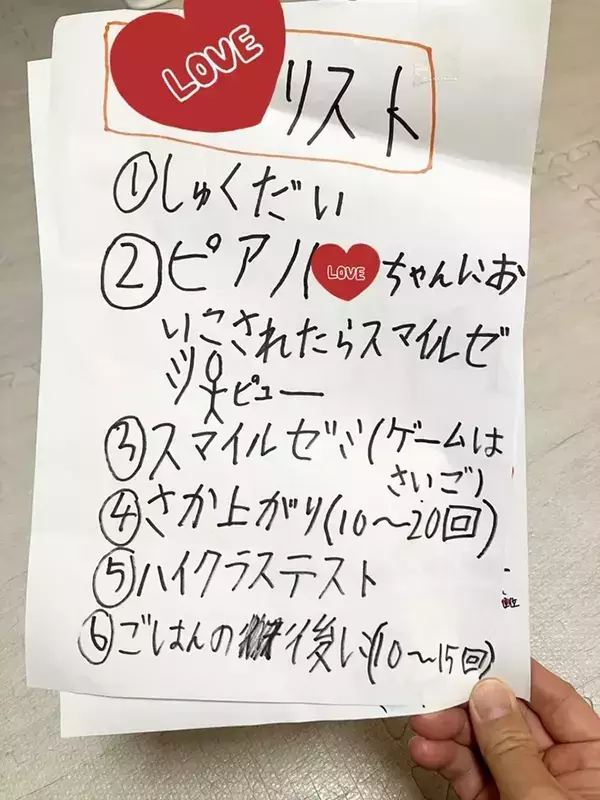 LOVE リスト
①しゅくだい
②ピアノ(LOVEちゃんにお
いこされたらスマイルゼ
ツ ピュー
③スマイルゼミ(ゲームは
さいご)
④さか上がり(10〜20回)
⑤ハイクラステスト
⑥ごはんの後い(10〜15回)